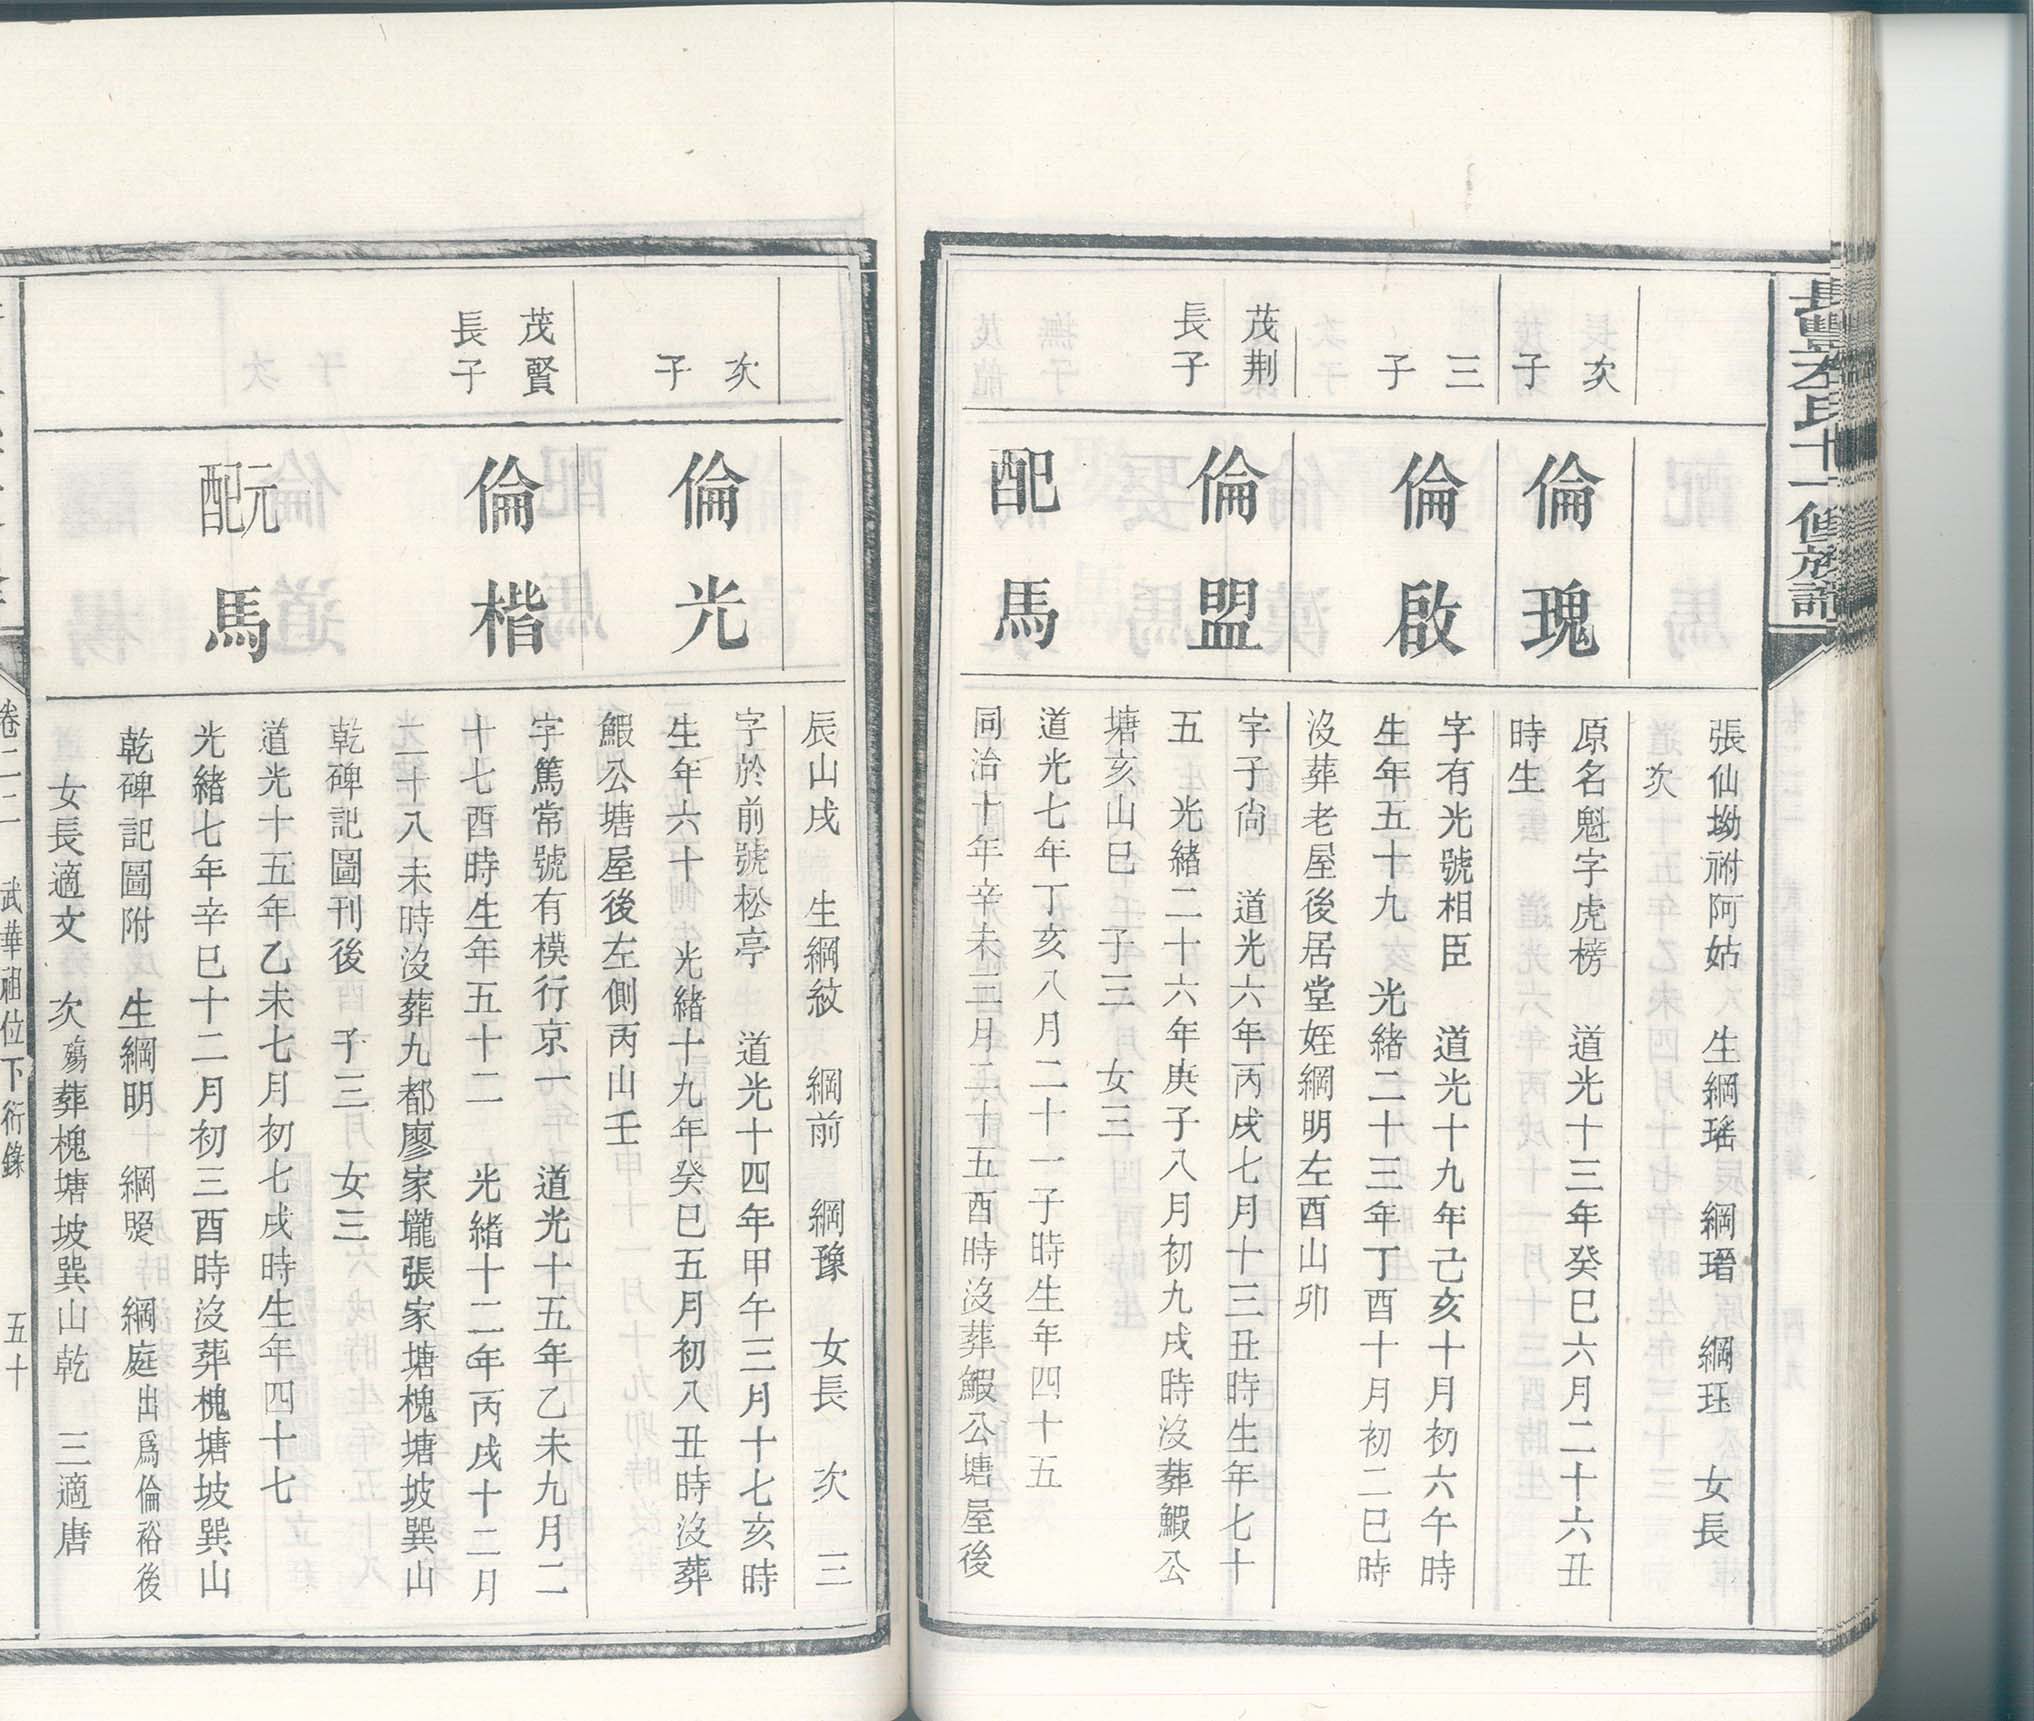 張仙坳祔阿姑　生綱瑤　綱瑨　綱珏　女長
次
次子
倫瑰
原名魁字虎榜　道光十三年癸巳六月二十六丑
時生
三子
倫啟
字有光號相臣　道光十九年己亥十月初六午時
生年五十九　光緒二十三年丁酉十月初二巳時
沒葬老屋後居堂姪綱明左酉山卯
茂荆長子
倫盟
字子尙　道光六年丙戌七月十三丑時生年七十
五　光緒二十六年庚子八月初九戌時沒葬鰕公
塘亥山巳　子三　女三
配馬
道光七年丁亥八月二十一子時生年四十五
同治十年辛未二月二十五酉時沒葬鰕公塘屋後
辰山戌　生綱紋　綱前　綱豫　女長　次　三
次子
倫光
字於前號松亭　道光十四年甲午三月十七亥時
生年六十　光緒十九年癸巳五月初八丑時沒葬
鰕公塘屋後左側丙山壬
茂賢長子
倫楷
字篤常號有模行京一　道光十五年乙未九月二
十七酉時生年五十二　光緒十二年丙戌十二月
二十八未時沒葬九都廖家壠張家塘槐塘坡巽山
乾碑記圖刊後　子三　女三
元配馬
道光十五年乙未七月初七戌時生年四十七
光緒七年辛巳十二月初三酉時沒葬槐塘坡巽山
乾碑記圖附　生綱明　綱煚　綱庭出爲倫裕後
女長適文　次殤葬槐塘坡巽山乾　三適唐
卷二二　武華祖位下衍錄　五十